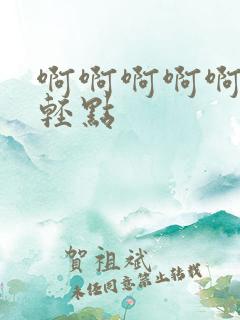 啊啊啊啊啊
輕點
賀祖斌
未经同意禁止转载